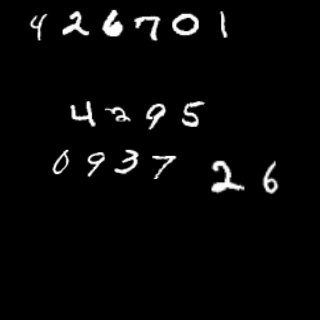 426701
4295
0937 26